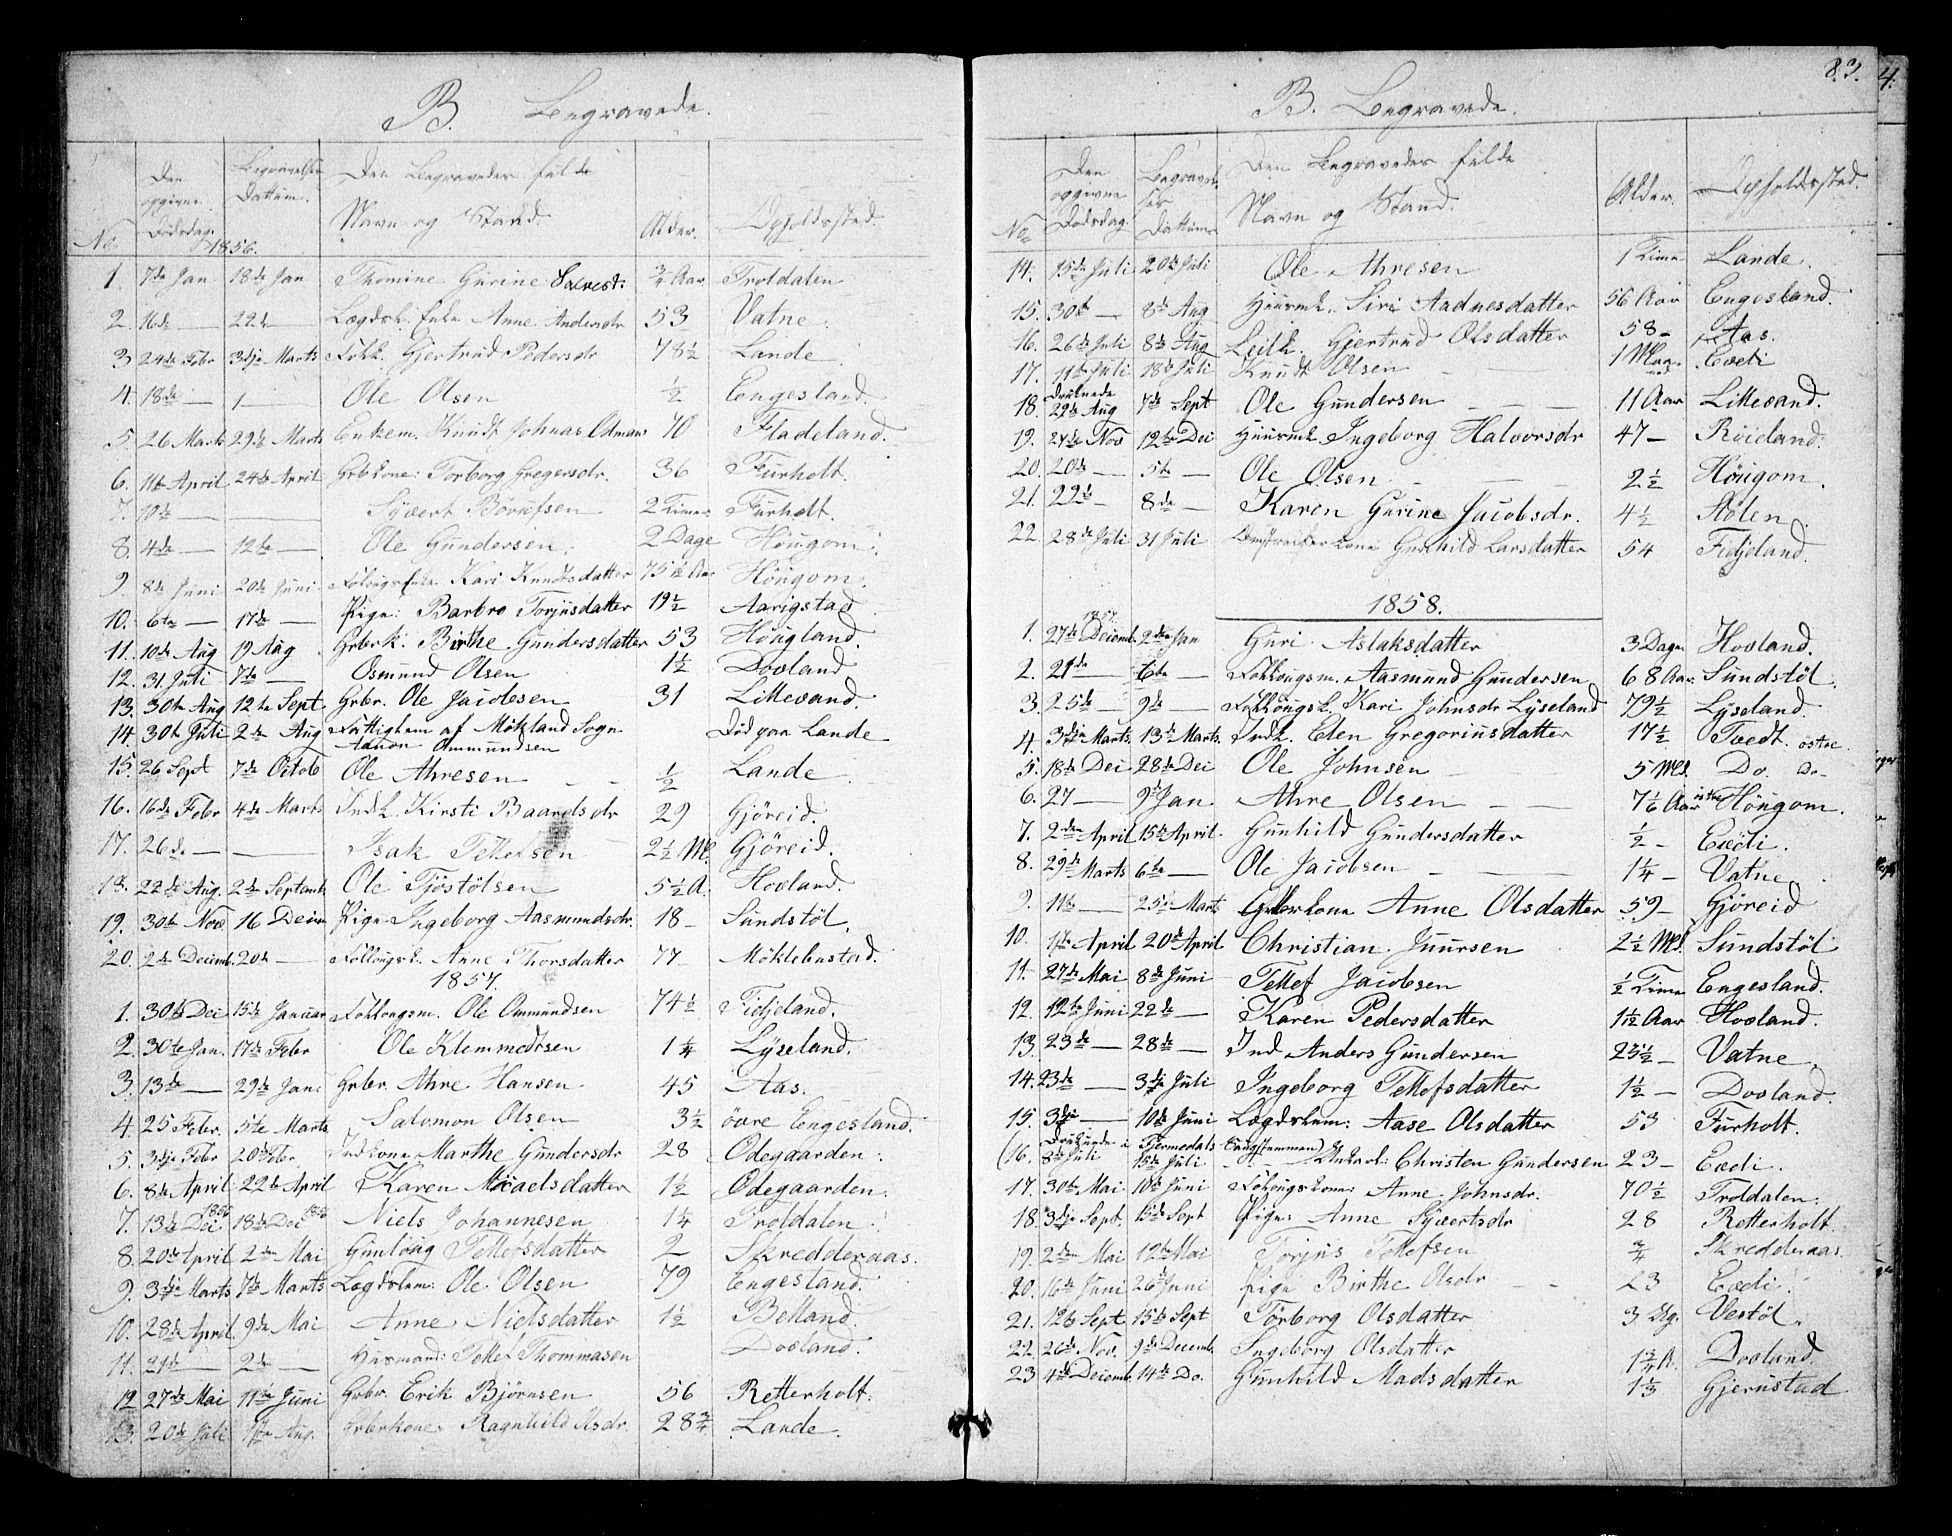 B. Begravede.
No. Den opgivne Dödsdag. Begravelses Dattum. Den Begravedes fulde Navn og Stand. Alder. Opholdssted.
1856.
1. 7de Jan 18de Jan Thomine Gurine Salvesd. 3/4 Aar Troldalen
2. 16de — 22de — Lægdsl. Enke Anne Andersdr 53 Vatne.
3 24de Febr 3die Marts Folk. Gjertrud Pedersdr 78½ Lande
4. 18de — 1 — Ole Olsen ½ Engesland.
5. 26 Marts 29de Marts Enkem. Knudt Johnas 70 Fladeland.
6. 11te April 24de April Grbkone: Torborg Gregersdr. 36 Furholt.
7. 10de — — Syvert Börufsen 2 Timer Furholt.
8. 4de — 12te — Ole Gundersen. 2 Dage Höugom.
9. 8de Juni 20de Juni Kari Knudtsdatter 75½ Aar Höugom.
10. 6te — 17de — Pige: Barbro Torjusdatter 19½ Aarigstad
11. 10de Aug 19 Aug Grbrk: Birthe Gundersdatter 53 Höugland.
12. 31. Juli 7de — Osmund Olsen 1½ Dovland
13. 30te Aug 12te Sept. Grbr. Ole Jacobsen 31 Lillesand.
14. 30te Juli 2de Aug Fattiglem af Sogn Ommundsen Död paa Lande
15. 26 Sept 7de Octob Ole Ahresen — ½ Lande
16. 16de Febr 4de Marts Indk. Kirsti Baardsdr 29 Gjöreid.
17. 26de — — Isak Tellefsen 2½ Md. Gjöreid.
18. 22de Aug. 2de Septemb. Ole Tjöstölsen 5½ A. Hovland.
19. 30te Nov. 16 Decem Pige Ingeborg Aasmundsdr. 18 – Sundstöl.
20. 2de Decemb. 20de — Anne Thorsdatter 77 Möklebustad.
1857.
1. 30te Dec 15de Januar Folkongsm. Ole Ommundsen 74½ Fidjeland.
2. 30te Jan. 17de Febr Ole Klemmedtsen 1¼ Lyseland.
3. 13de — 29de Jan. Grbr. Ahre Hansen 45 Aas.
4. 25 Febr. 5te Marts Salomon Olsen 3½ övre Engesland.
5. 3die Febr 20de Febr Indkone Marthe Gundersdr 28 Ödegaarden.
6. 8de April 22de April Karen Micaelsdatter 1½ Ödegaarden.
7. 13de Dec 1856 18de Dec 1856 Niels Johannesen 1¼ Troldalen.
8. 20de April 2den Mai Gunlöug Tellefsdatter 2 Skredderaas.
9. 3die Marts 7de Marts Lægdslem: Ole Olsen 79 Engesland.
10. 28de April 9de Mai Anne Nielsdatter 1½ Belland.
11. 21de — 2den — Husmand: Tellef Thommasen Dovland.
12 27de Mai 11te Juni Grbr. Erik Björnsen 56 Retterholt.
13. 20de Juli Aug. Grbrkone Ragnhild Olsdr. 28¾ Lande.
83.
B. Begravede.
No. Den opgivne Dödsdag. Begravelses Dattum. Den Begravedes fulde Navn og Stand. Alder. Opholdssted.
14. 15de Juli 20de Juli Ole Ahresen 1 Time Lande.
15. 30te — 8de Aug Huusmk. Siri Aadnesdatter 56 Aar Engesland.
16. 26de Juli 8de Aug Gjertrud Olsdatter 58 – Aas.
17. 11te Juli 18de Juli Knudt Olsen — 1 Evedi
18. Druknede 29de Aug 7de Sept Ole Gundersen — 11 Aar Lillesand.
19. 27de Nov 12te Dec Huusmk. Ingeborg Halvorsdr 47 – Röieland.
20. 20de — 5te — Ole Olsen — 2½ Höugom.
21. 22de – 8de — Karen Gurine Jacobsdr. 4½ Stölen.
22. 28de Juli 31 Juli Gunhild Larsdatter 54 Fidjeland.
1858.
1. 27de Decemb. 1857. 2den Jan Guri Aslaksdatter 3 Dage Hovland.
2. 21de — 6te — Folkongsm. Aasmund Gundersen 68 Aar Sundstöl.
3. 25de — 9de — Folkongsk. Kari Johnsdr Lyseland 79½ Lyseland.
4. 3die Marts. 13de Marts. Indk. Elen Gregoriusdatter 17½ Tvedt. östre
5. 18de Dec 28de Dec Ole Johnsen — 5 Md. Do. Do–
6. 27 — 9de Jan Ahre Olsen — 7 1/6 Aar Höugom.
7. 2den April 15de April. Gunhild Gundersdatter ½ – Evedi.
8. 29de Marts 6te — Ole Jacobsen — 1¼ – Vatne.
9. 11te — 25de Marts Anne Olsdatter 59 – Gjöreid
10. April 20de April Christian Juursen 2½ Md. Sundstöl
11. 27de Mai 8de Juni Tellef Jacobsen ½ Time Engesland.
12. 12te Juni 22de — Karen Pedersdatter 1½ Aar Hovland.
13. 23de — 28de — Ind Anders Gundersen 25½ – Vatne.
14. 23de — 3die Juli Ingeborg Tellefsdatter 1½ – Dovland.
15. 3die — 10de Juni Lægdslem: Aase Olsdatter 53 Furholt.
16. Druknede i 8de Juli 15de Juli Christen Gundersen 23 – Evedi.
17. 30te Mai 10de Juni Anne Johnsdr. 70½ Troldalen.
18. 3die Sept. 15de Sept Pige: Anne Syvertsdr 28 Retterholt
19. 2den Mai 12te Mai Torjus Tellefsen ¾ Skredderaas.
20. 16de Juni 26de Juni Pige Birthe Olsdr — 23 Evedi.
21. 12te Sept 15de Sept Törborg Olsdatter 3 Vestöl.
22. 26de Nov. 9de Decemb. Ingeborg Olsdatter 1¾ A. Dovland.
23 4de Decemb. 14de Do. Gunhild Madsdatter 1⅓ Gjerustad